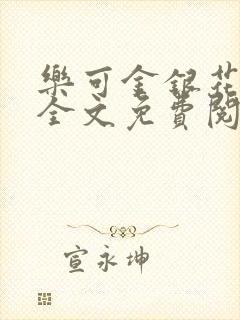 樂可金銀花
全文免費閱
宣永坤